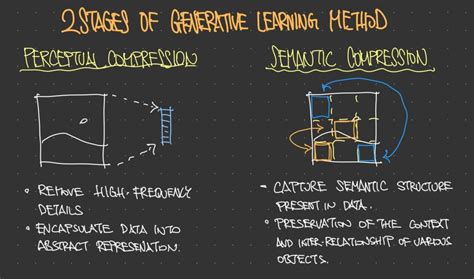 2 STAGES OF GENERATIVE LEARNING METHOD
PERCEPTUAL COMPRESSION
• REMOVE HIGH-FREQUENCY
DETAILS
• ENCAPSULATE DATA INTO
ABSTRACT REPRESENATION.
SEMANTIC COMPRESSION
• CAPTURE SEMANTIC STRUCTURE
PRESENT IN DATA.
• PRESERVATION OF THE CONTEXT
AND INTER-RELATIONSHIP OF VARIOUS
OBJECTS.